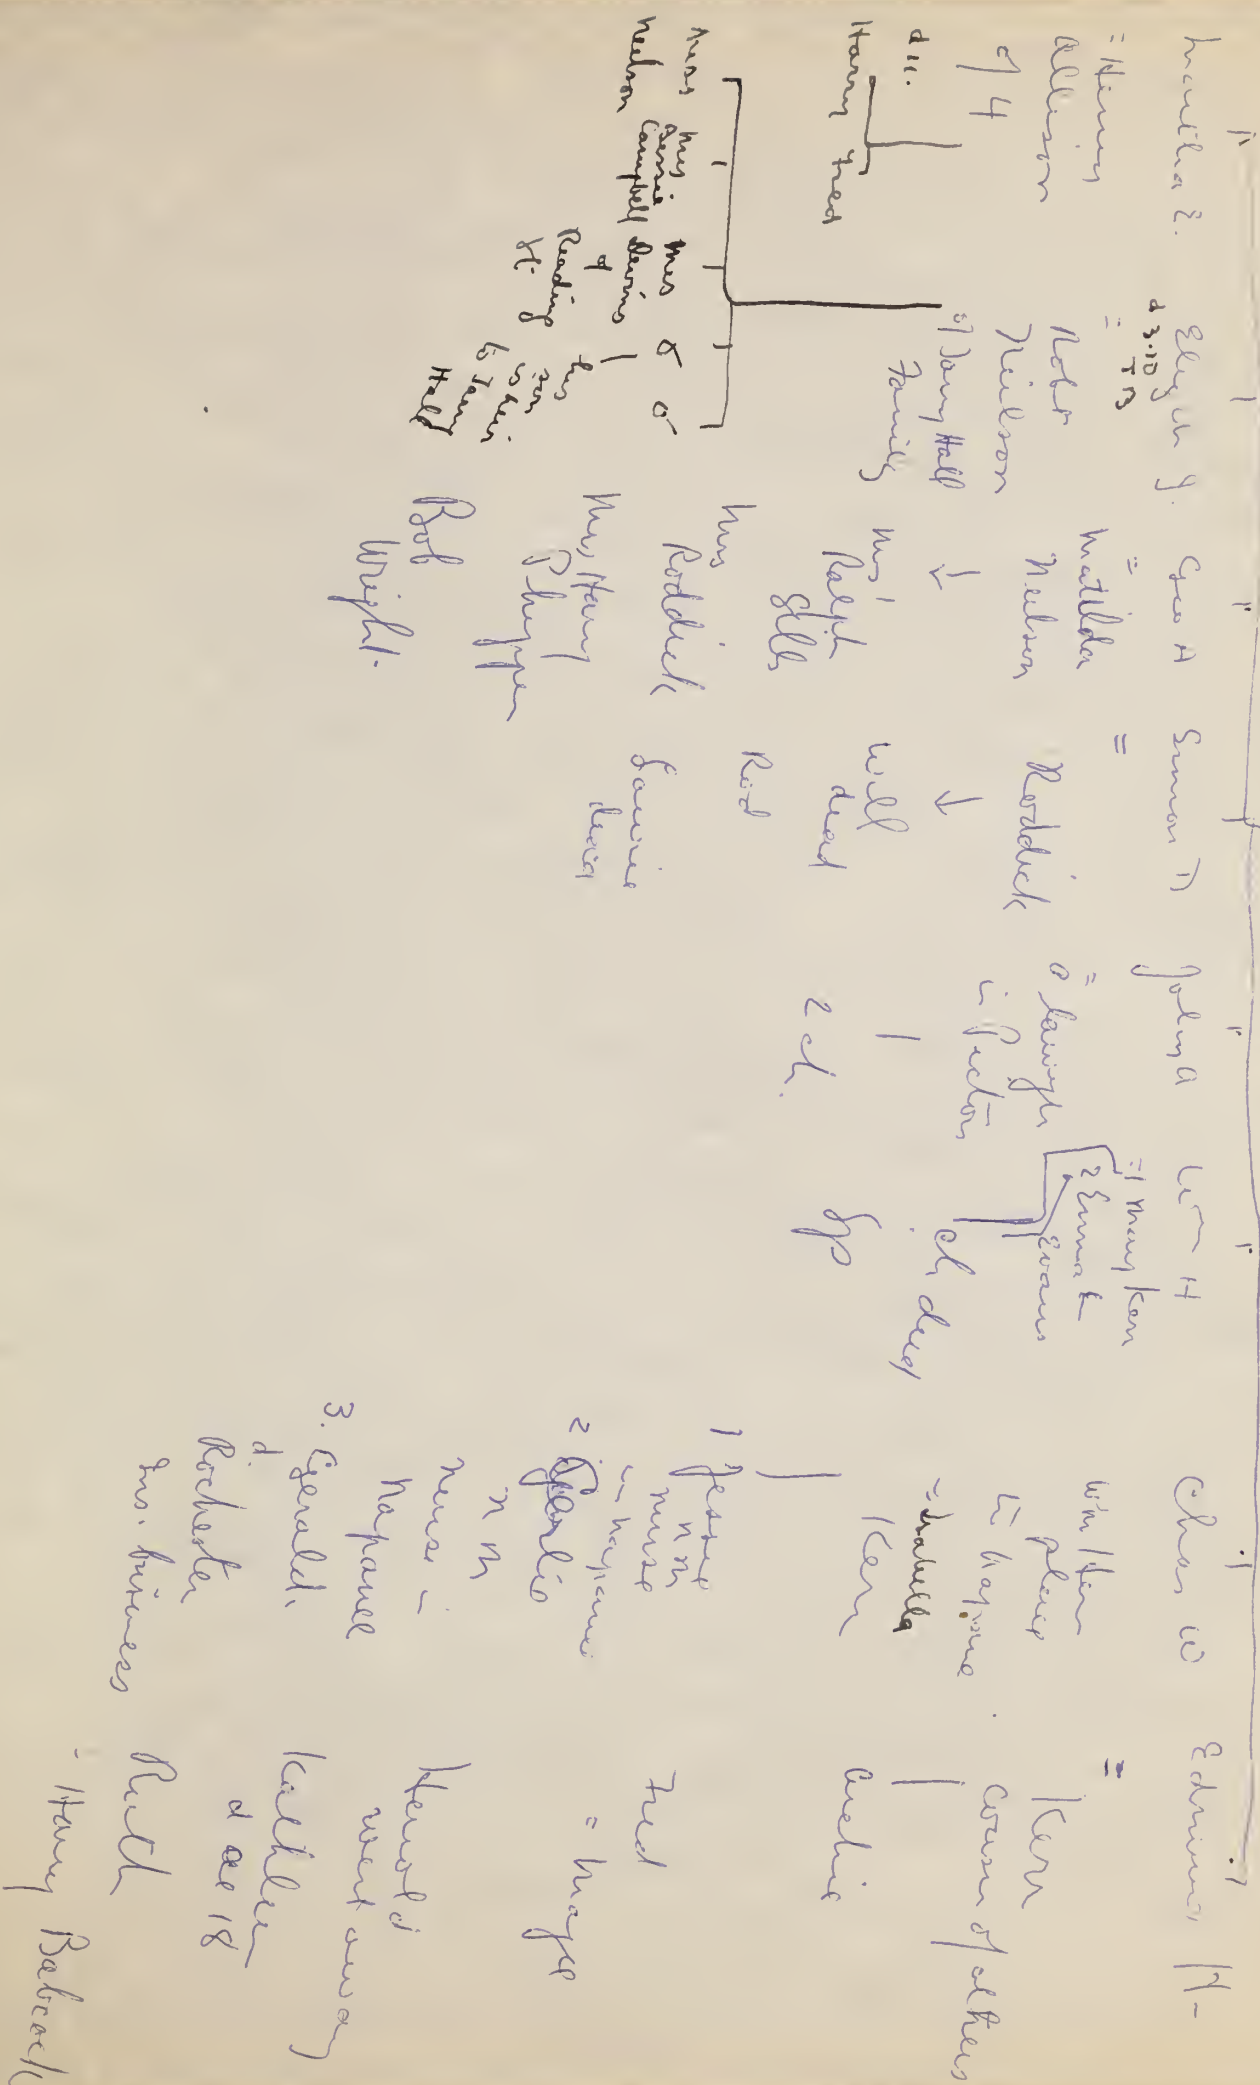 Martha E.
= Henry
Allison
of 4
d 11.
Harry Fred
Elizh J.
d 3.10
TB
=
Robt
Neilson
of Tany Hall
Family
Miss
Neilson
Mrs
Bessie
Campbell
Mrs
Devins
of
Reading
St.
his
son
is heir
to Tany
Hall
Geo A
=
Matilda
Neilson
Mrs
Ralph
Gells
Mrs
Roddick
Mrs Harry
Phyppen
Bob
Wright.
Simon
=
Roddick
Will
dead
Rod
dead
John A
=
a lawyer
in Picton
2 ch.
Wm H
=1 Mary Kerr
2 Emma E
Evans
ch died
Sp
Chas W
Wm Hen
place
in Napanee
= Isabella
Kerr
1 Jessie
n m
nurse
in Napanee
2
n m
nurse in
Napanee
3. Gerald.
d.
Rochester
Ins. business
Edmund H
=
Kerr
cousin of others
Archie
Fred
= Magee
Herold
went away
Kathleen
d ae 18
Ruth
= Harry Babcock